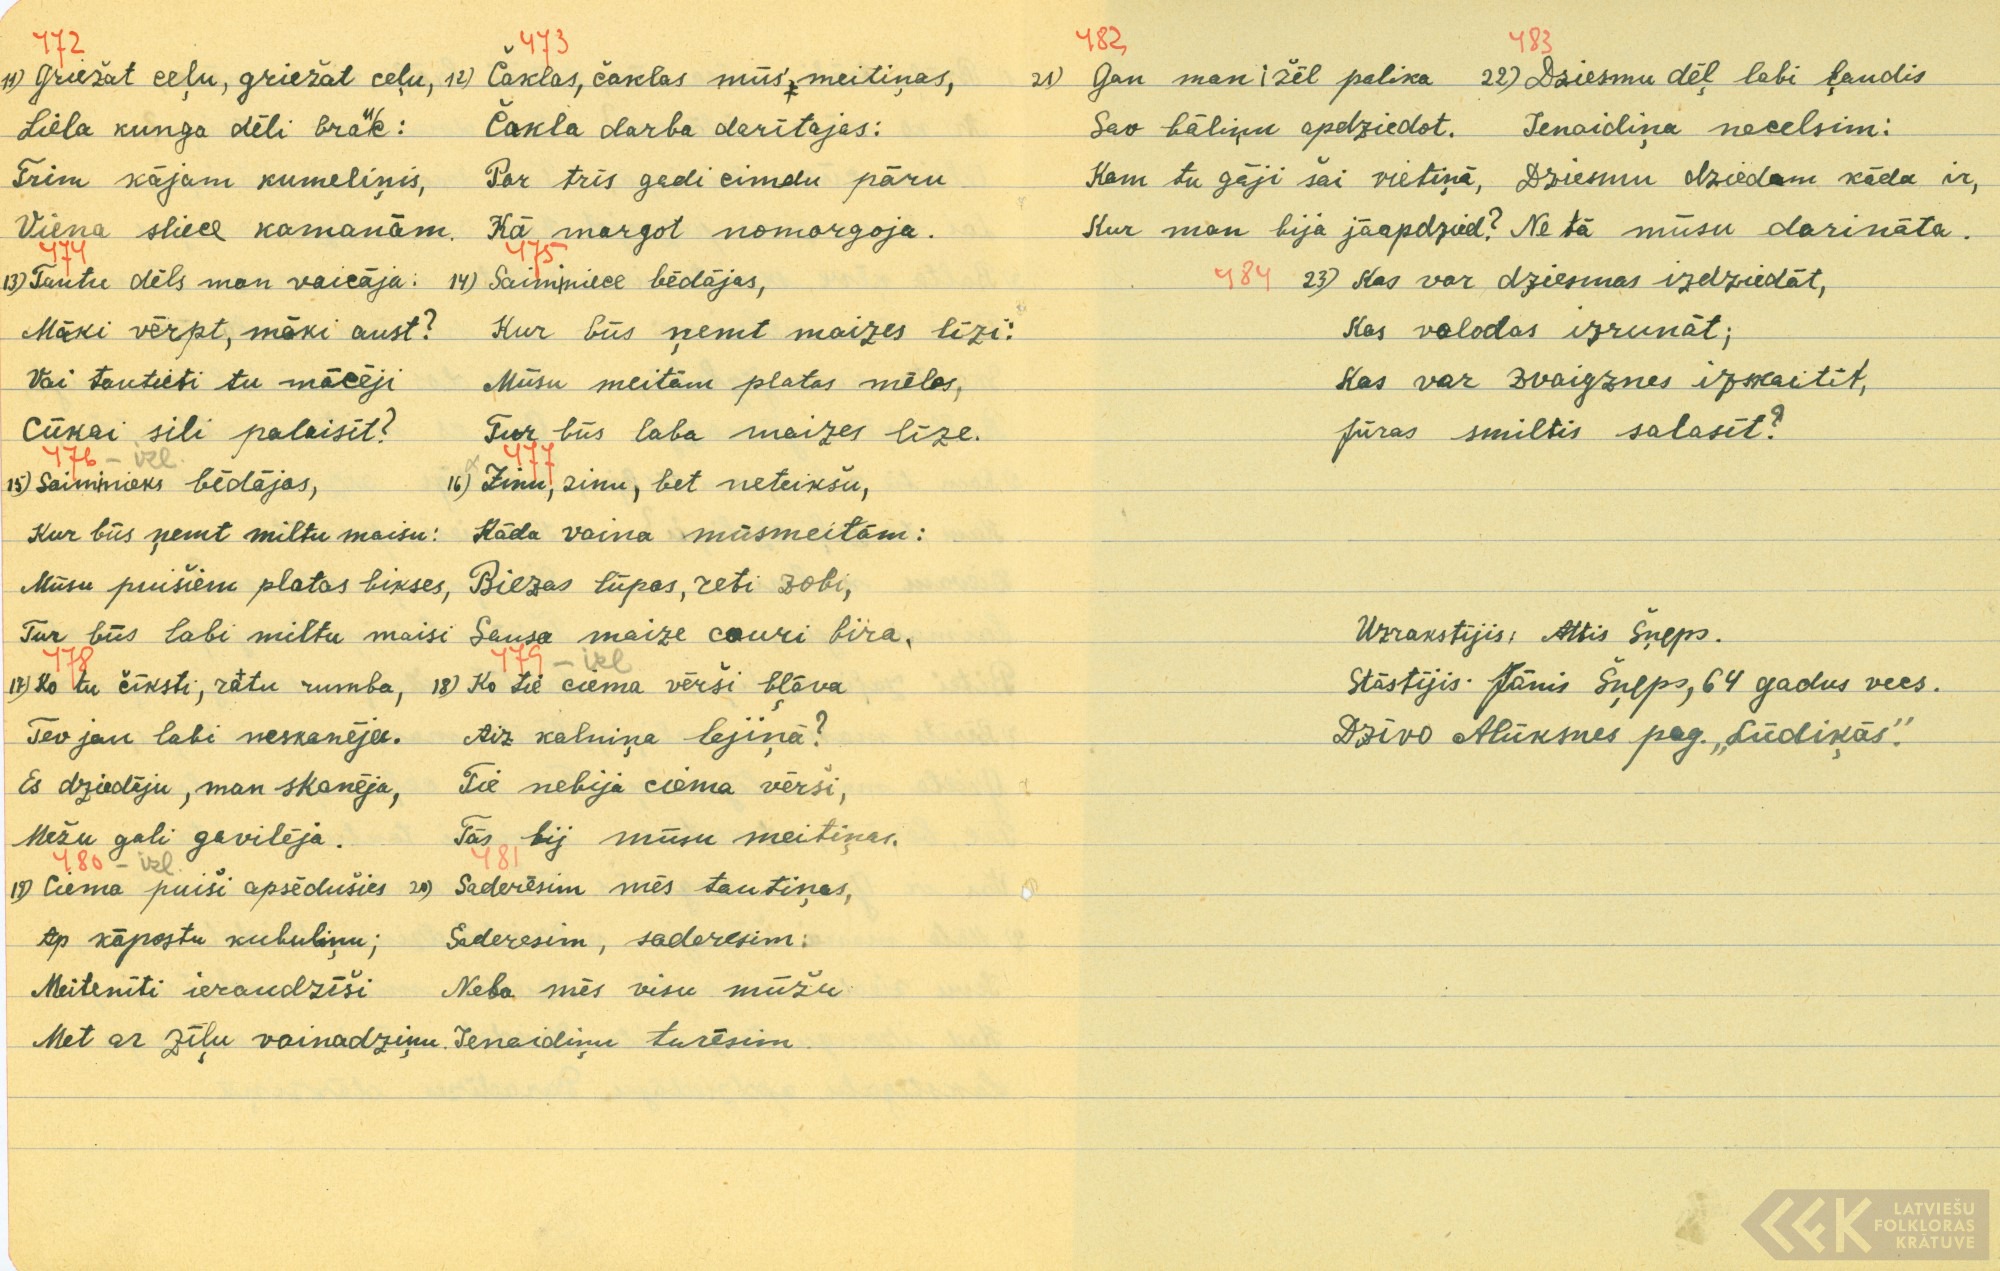 472
11) Griežat ceļu, griežat ceļu,
Liela kunga dēli brauc:
Trim kājam kumeliņis,
Viena sliece kamanām.
473
12) Čaklas, čaklas mūs' meitiņas,
Čakla darba darītajas:
Par trīs gadi cimdu pāru
Kā margot nomargoja.
474
13) Tautu dēls man vaicāja:
Māki vērpt, māki aust?
Vai tautieti tu mācēji
Cūkai sili palaisīt?
475
14) Saimniece bēdājas,
Kur būs ņemt maizes līzi:
Mūsu meitām platas mēles,
Tur būs laba maizes līze.
476 – izl.
15) Saimnieks bēdājas,
Kur būs ņemt miltu maisu:
Mūsu puišiem platas bikses,
Tur būs labi miltu maisi
477
16) Zinu, zinu, bet neteikšu,
Kāda vaina mūsmeitām:
Biezas lūpas, reti zobi,
Sausa maize cauri bira.
478
17) Ko tu čīksti, ratu rumba,
Tev jau labi neskanēja.
Es dziedāju, man skanēja,
Mežu gali gavilēja.
479 – izl
18) Ko tie ciema vērši bļāva
Aiz kalniņa lejiņā?
Tie nebija ciema vērši,
Tās bij mūsu meitiņas.
480 – izl.
19) Ciema puiši apsēdušies
Ap kāpostu kubuliņu;
Meitenīti ieraudzīši
Met ar zīļu vainadziņu.
481
20) Saderēsim mēs tautiņas,
Saderesim, saderesim:
Neba mēs visu mūžu
Ienaidiņu turēsim
482
21) Gan man žēl palika
Savo bāliņu apdziedot.
Kam tu gāji šai vietiņā,
Kur man bija jāapdzied?
483
22) Dziesmu dēļ labi ļaudis
Ienaidiņa necelsim:
Dziesmu dziedam kāda ir,
Ne tā mūsu darināta.
484
23) Kas var dziesmas izdziedāt,
Kas valodas izrunāt;
Kas var zvaigznes izskaitīt,
Jūras smiltis salasīt?
Uzrakstījis: Attis Šņeps.
Stāstījis: Jānis Šņeps, 64 gadus vecs.
Dzīvo Alūksnes pag. „Lūdiķās".
LATVIEŠU
FOLKLORAS
KRĀTUVE